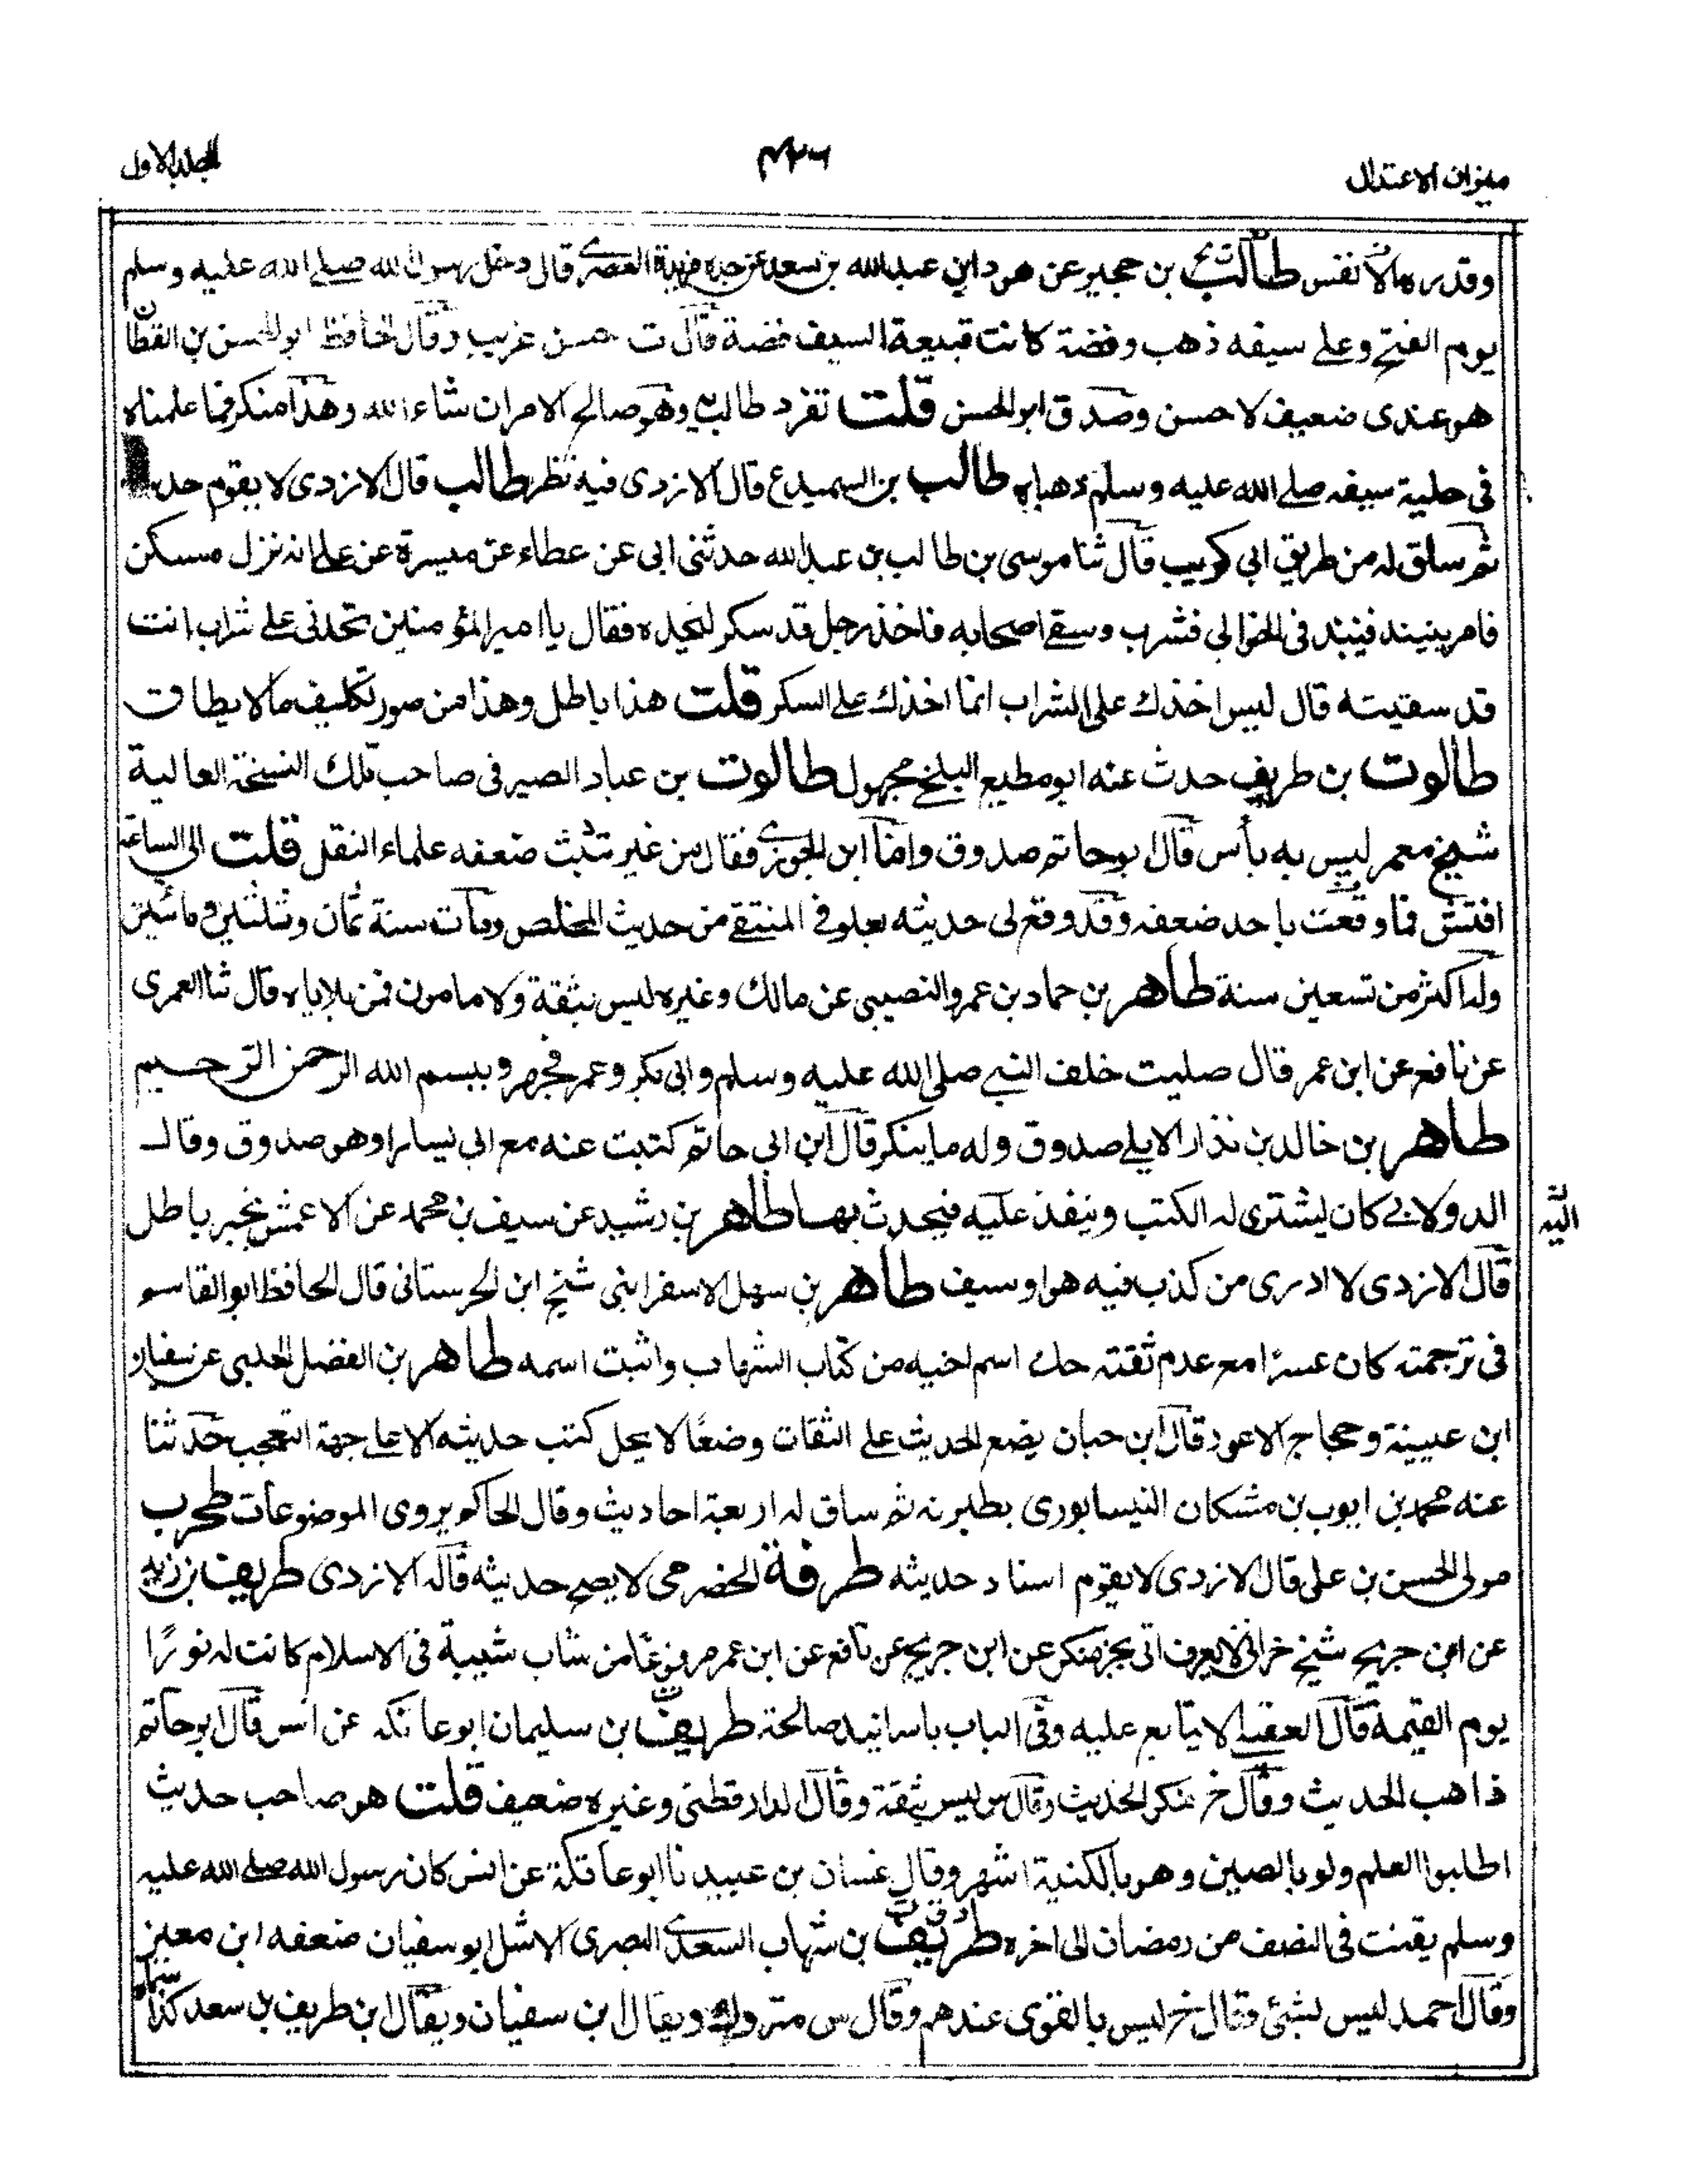 ميزان الاعتدال
٤٢٦
المجلد الاول
وقدرها الانفس طالب بن حجير عن هود ابن عبدالله بن سعد عن جده مزيدة العصرى قال دخل رسول الله صلے الله عليه وسلم
يوم الفتح وعلى سيفه ذهب وفضة كانت قبيعة السيف فضة قال ت حسن غريب وقال الحافظ ابو الحسن بن القطان
هو عندى ضعيف لا حسن وصدق ابو الحسن قلت تفرد طالب به وهو صالح الامر ان شاء الله وهذا منكر فما علمناه
فى حلية سيفه صلے الله عليه وسلم ذهبا طالب بن السميدع قال الازدى فيه نظر طالب قال الازدى لا يقوم
ثم ساق له من طريق ابى كريب قال ثنا موسى بن طالب بن عبدالله حدثنى ابى عن عطاء عن ميسرة عن على انه نزل مسكن
فامر بنبيذ فينبذ فى الخوابى فشرب وسقے اصحابه فاخذ رجل قد سكر ليحده فقال يا امير المؤمنين تحدنى على شراب انت
قد سقيته قال ليس اخذك على الشراب انما اخذك على السكر قلت هذا باطل وهذا من صور تكليف ما لا يطاق
طالوت بن طريف حدث عنه ابو مطيع البلخے مجهول طالوت بن عباد الصيرفى صاحب تلك النسخة العالية
شيخ معمر ليس به بأس قال ابو حاتم صدوق واما ابن الجوزى فقال من غير تثبت ضعفه علماء النقل قلت الى الساعة
افتش فما وقعت باحد ضعفه وقد وقع لى حديثه بعلو فى المنتقے من حديث المخلص ومات سنة ثمان وثلثين ومائتين
وله اكثر من تسعين سنة طاهر بن حماد بن عمرو النصيبى عن مالك وغيره ليس بثقة ولا مامون فمن بلاياه قال ثنا العمرى
عن نافع عن ابن عمر قال صليت خلف النبے صلى الله عليه وسلم وابى بكر وعمر فجهروا ببسم الله الرحمن الرحيم
طاهر بن خالد بن نزار الايلے صدوق وله ما ينكر قال ابن ابى حاتم كتبت عنه مع ابى بسامرا وهو صدوق وقال
الدولابے كان يشترى له الكتب وينفذ عليه فيحدث بها طاهر بن رشيد عن سيف بن محمد عن الاعمش بخبر باطل
اليه
قال الازدى لا ادرى من كذب فيه هو او سيف طاهر بن سهل الاسفراينى شيخ ابن الحرستانى قال الحافظ ابو القاسم
فى ترجمته كان عسرا مع عدم ثقته حك اسم اخيه من كتاب الشهاب واثبت اسمه طاهر بن الفضل الحلبى عن سفيان
ابن عيينة وحجاج الاعور قال ابن حبان يضع الحديث على الثقات وضعًا لا يحل كتب حديثه الا على جهة التعجب حدثنا
عنه محمد بن ايوب بن مشكان النيسابورى بطبريه ثم ساق له اربعة احاديث وقال الحاكم يروى الموضوعات طحرب
مولى الحسن بن على قال الازدى لا يقوم اسناد حديثه طرفة الحضرمى لا يصح حديثه قاله الازدى طريف بن زيد
عن ابن جريج شيخ حرانى لا يعرف اتى بخبر منكر عن ابن جريج عن نافع عن ابن عمر مرفوعًا من شاب شيبة فى الاسلام كانت له نورًا
يوم القيمة قال العقيلے لا يتابع عليه وفى الباب باسانيد صالحة طريف بن سليمان ابو عاتكه عن انس قال ابو حاتم
ذاهب الحديث وقال خ منكر الحديث وقال س ليس بثقة وقال الدارقطنى وغيره ضعيف قلت هو صاحب حديث
اطلبوا العلم ولو بالصين وهو بالكنية اشهر وقال غسان بن عبيد نا ابو عاتكة عن انس كان رسول الله صلے الله عليه
وسلم يقنت فى النصف من رمضان الى اخره طريف بن شهاب السعدى البصرى الاشل ابو سفيان ضعفه ابن معين
وقال احمد ليس بشئ وقال خ ليس بالقوى عندهم وقال س متروك ويقال ابن سفيان ويقال ابن طريف بل سعد كذا